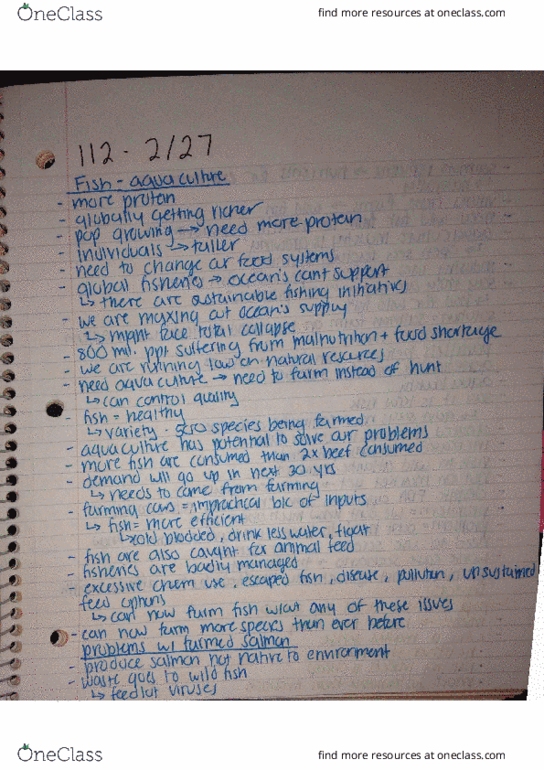 OneClass
find more resources at oneclass.com
112 - 2/27
Fish - aquaculture
- more protein
- globally getting richer
- pop growing → need more protein
- individuals → taller
- need to change our food systems
- global fisheries → ocean's cant support
↳ there are sustainable fishing initiatives
- we are maxing out ocean's supply
↳ might face total collapse
- 800 mil. ppl suffering from malnutrition + food shortage
- we are running low on natural resources
- need aquaculture → need to farm instead of hunt
↳ can control quality
- fish = healthy
↳ variety - species being farmed
- aquaculture has potential to solve our problems
- more fish are consumed than 2x beef consumed
- demand will go up in next 30 yrs
↳ needs to come from farming
- farming cows = impractical b/c of inputs
↳ fish = more efficient
↳ cold blooded, drink less water, float
- fish are also caught for animal feed
- fisheries are badly managed
- excessive chem use, escaped fish, disease, pollution, unsustained
feed options
↳ can now farm fish w/out any of these issues
- can now farm more species than ever before
problems w/ farmed salmon
- produce salmon not native to environment
- waste goes to wild fish
↳ feedlot viruses
OneClass
find more resources at oneclass.com